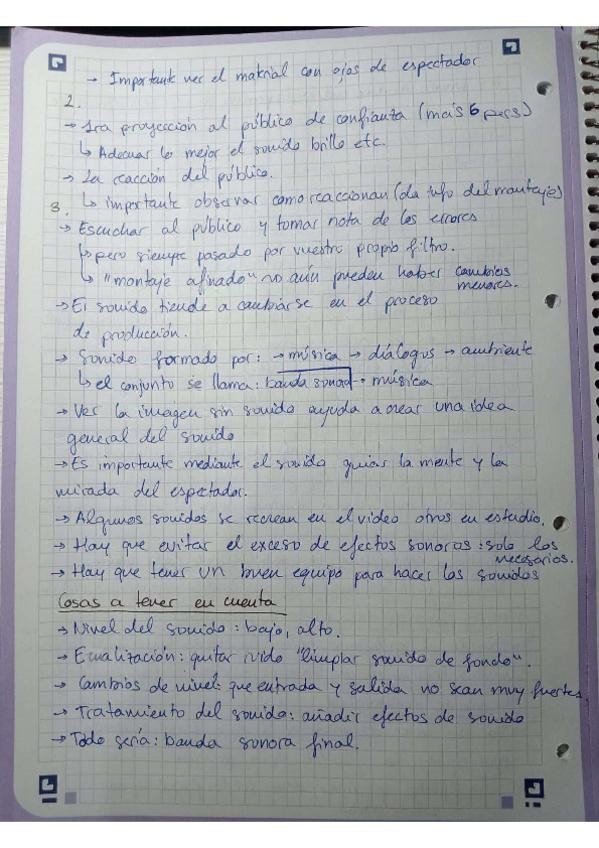 → Importante ver el material con ojos de espectador
2.
→ 1ra proyección al público de confianza (mais 6 pers)
↳ Adecuar lo mejor el sonido brillo etc.
→ La reacción del público.
3. ↳ importante observar como reaccionan (da info del montaje)
→ Escuchar al público y tomar nota de los errores
↳ pero siempre pasado por vuestro propio filtro.
↳ "montaje afinado" no aún pueden haber cambios menores.
→ El sonido tiende a cambiarse en el proceso
de producción.
→ Sonido formado por: → música → diálogos → ambiente
↳ el conjunto se llama: banda sonora · música
→ Ver la imagen sin sonido ayuda a crear una idea
general del sonido
→ Es importante mediante el sonido guiar la mente y la
mirada del espectador.
→ Algunos sonidos se recrean en el video otros en estudio.
→ Hay que evitar el exceso de efectos sonoros: solo los necesarios.
→ Hay que tener un buen equipo para hacer los sonidos
Cosas a tener en cuenta
→ Nivel del sonido: bajo, alto.
→ Ecualización: quitar ruido "limpiar sonido de fondo".
→ Cambios de nivel: que entrada y salida no sean muy fuertes.
→ Tratamiento del sonido: añadir efectos de sonido
→ Todo sería: banda sonora final.